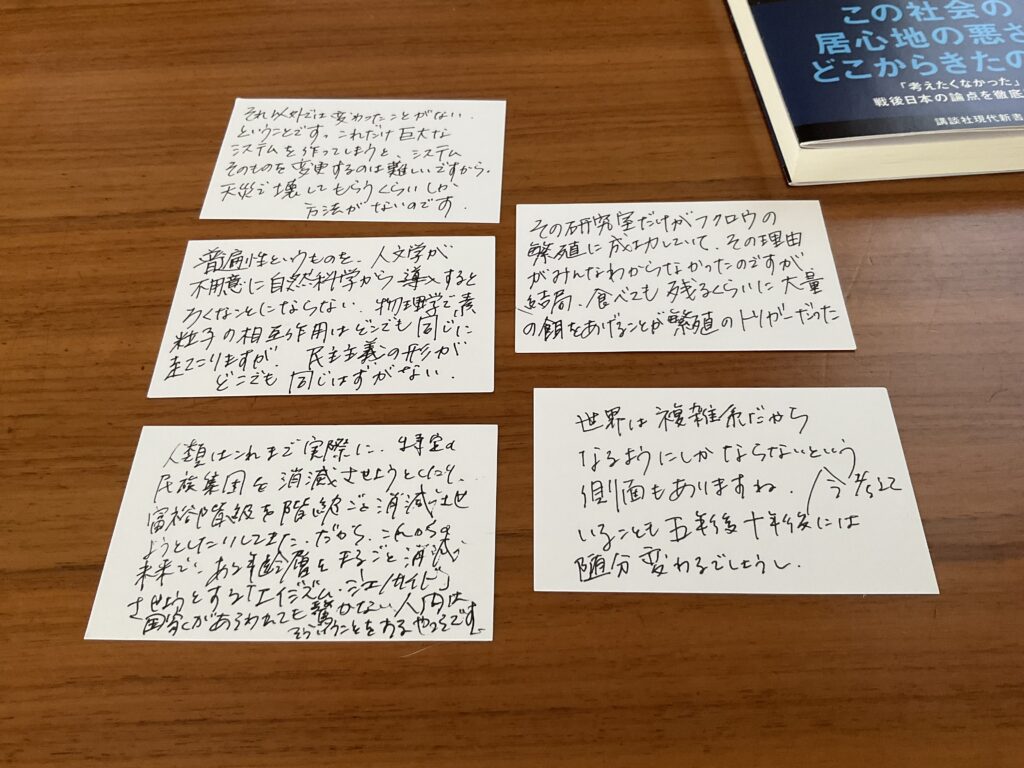 この社会の
居心地の悪さ
どこからきたの
「考えたくなかった」
戦後日本の論点を徹底
講談社現代新書
それ以外では変わったことがない.
ということです。これだけ巨大な
システムを作ってしまうと、システム
そのものを変更するのは難しいですから.
天災で壊してもらうくらいしか
方法がないのです.
普遍性というものを、人文学が
不用意に自然科学から導入すると
ろくなことにならない. 物理学で素
粒子の相互作用はどこでも同じに
起こりますが、民主主義の形が
どこでも同じはずがない.
人類はこれまで実際に、特定の
民族集団を消滅させようとしたり、
富裕階級を階級ごと消滅させ
ようとしたりしてきた. だから、これからの
未来で、ある年齢層をまるごと消滅
させようとする「エイジズム・ジェノサイド」
があらわれても驚かない. 人間は
そういうことをするやつらです
その研究室だけがフクロウの
繁殖に成功していて、その理由
がみんなわからなかったのですが
結局、食べても残るくらいに大量
の餌をあげることが繁殖のトリガーだった
世界は複雑系だから
なるようにしかならないという
側面もありますね. 今
いることも五年後十年後には
随分変わるでしょうし.